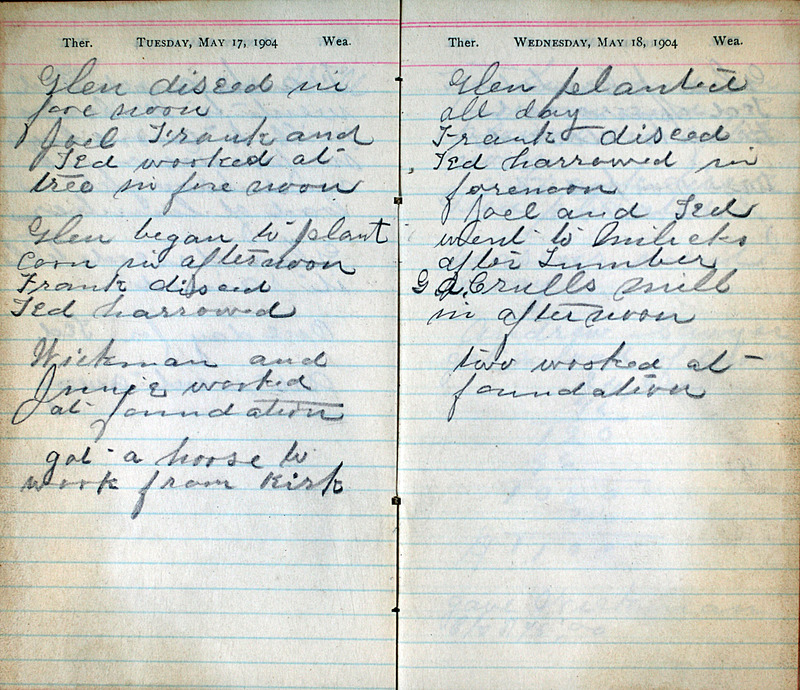 Ther. Tuesday, May 17, 1904 Wea.
Glen disced in
fore noon
Joel Frank and
Ted worked at
tree in fore noon
Glen began to plant
corn in afternoon
Frank disced
Ted harrowed
Wickman and
worked
at foundation
got a horse to
work from Kirk
Ther. Wednesday, May 18, 1904 Wea.
Glen planted
all day
Frank disced
Ted harrowed in
forenoon
Joel and Ted
went to
after Lumber
Crulls mill
in afternoon
two worked at
foundation